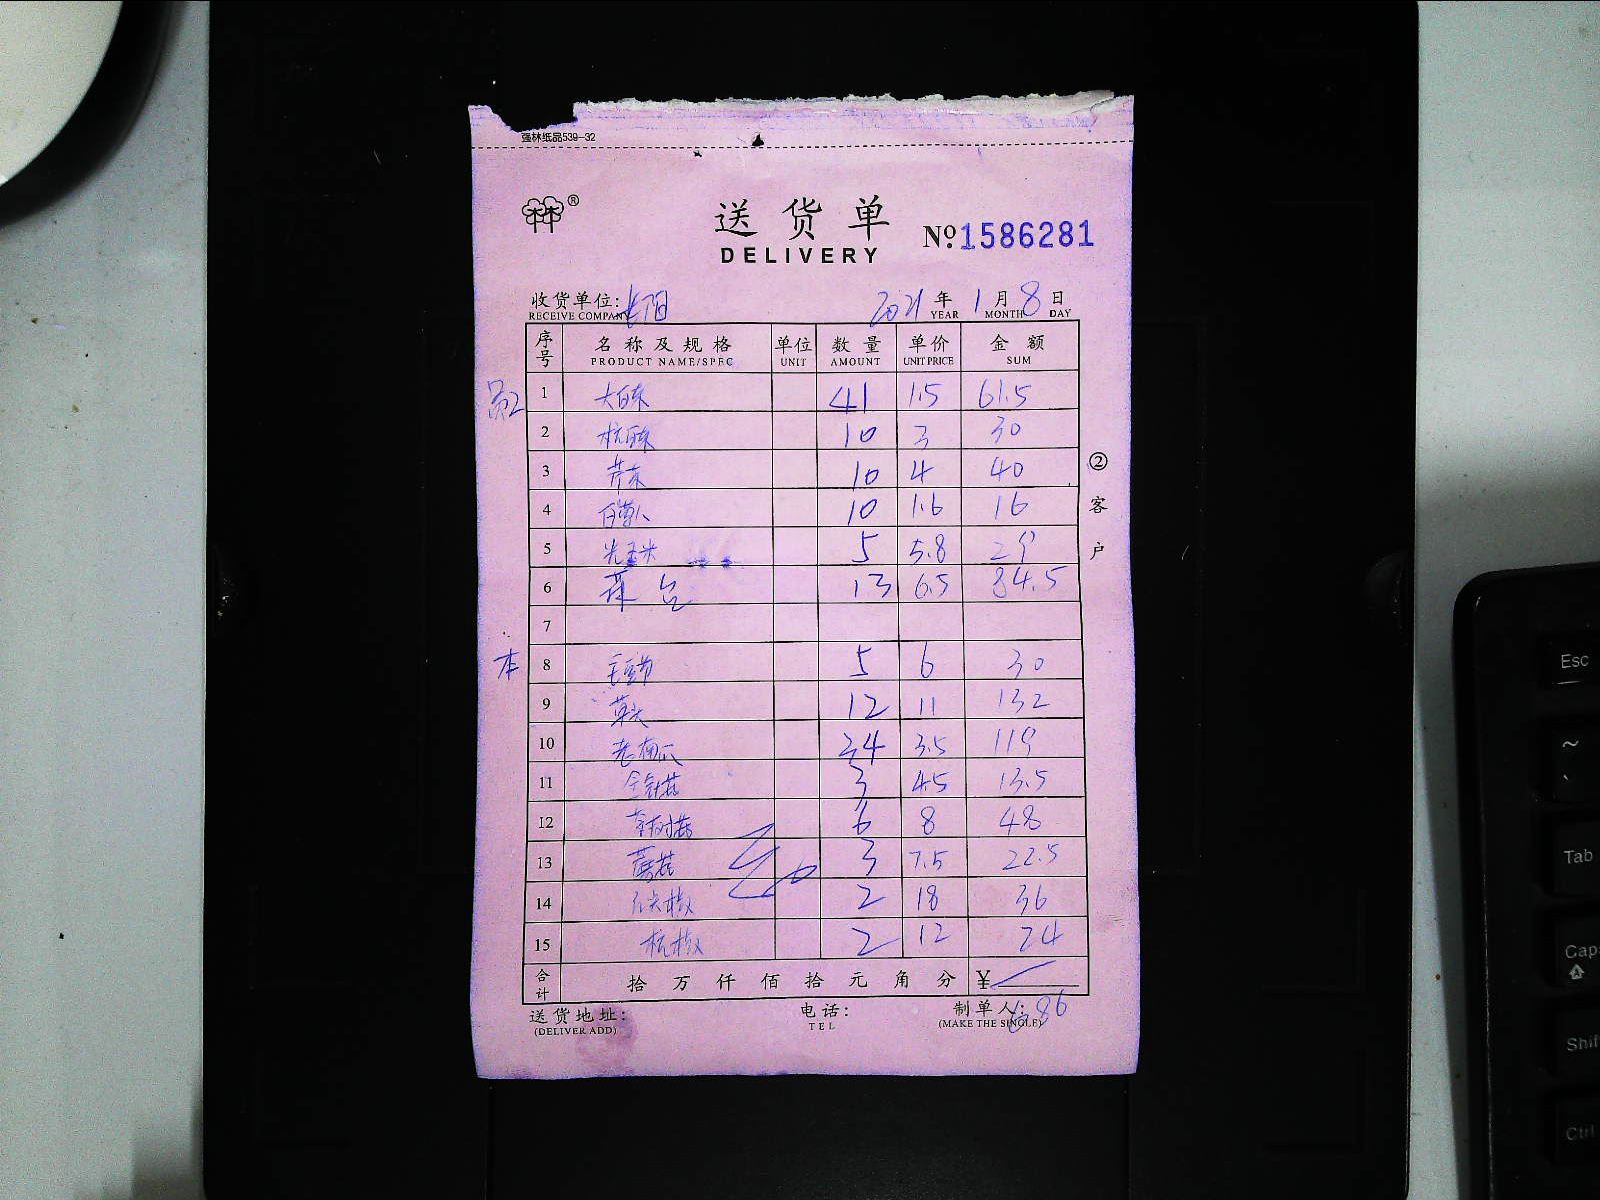 强林纸品539-32
林®
送货单
DELIVERY
№1586281
收货单位: 长阳
RECEIVE COMPANY
2021年 1月 8日
YEAR MONTH DAY
序号 名称及规格 单位 数量 单价 金额
PRODUCT NAME/SPEC UNIT AMOUNT UNIT PRICE SUM
员工 1 大白菜 41 1.5 61.5
2 杭白菜 10 3 30
3 芹菜 10 4 40
4 白萝卜 10 1.6 16
5 光玉米 5 5.8 29
6 菜苔 13 6.5 84.5
7
本 8 毛豆节 5 6 30
9 草头 12 11 132
10 老南瓜 34 3.5 119
11 金针菇 3 4.5 13.5
12 茶树菇 6 8 48
13 蘑菇 3 7.5 22.5
14 尖椒 2 18 36
15 杭椒 2 12 24
合计 拾万仟佰拾元角分 ¥
686
送货地址:
(DELIVER ADD)
电话:
TEL
制单人:
(MAKE THE SINGLE)
②客户
Esc
~
`
Tab
Caps
Shif
Ctrl